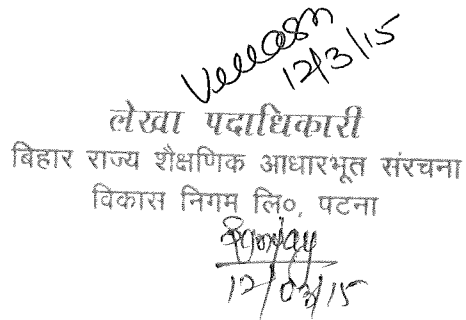 12/3/15
लेखा पदाधिकारी
बिहार राज्य शैक्षणिक आधारभूत संरचना
विकास निगम लि०, पटना
12/03/15